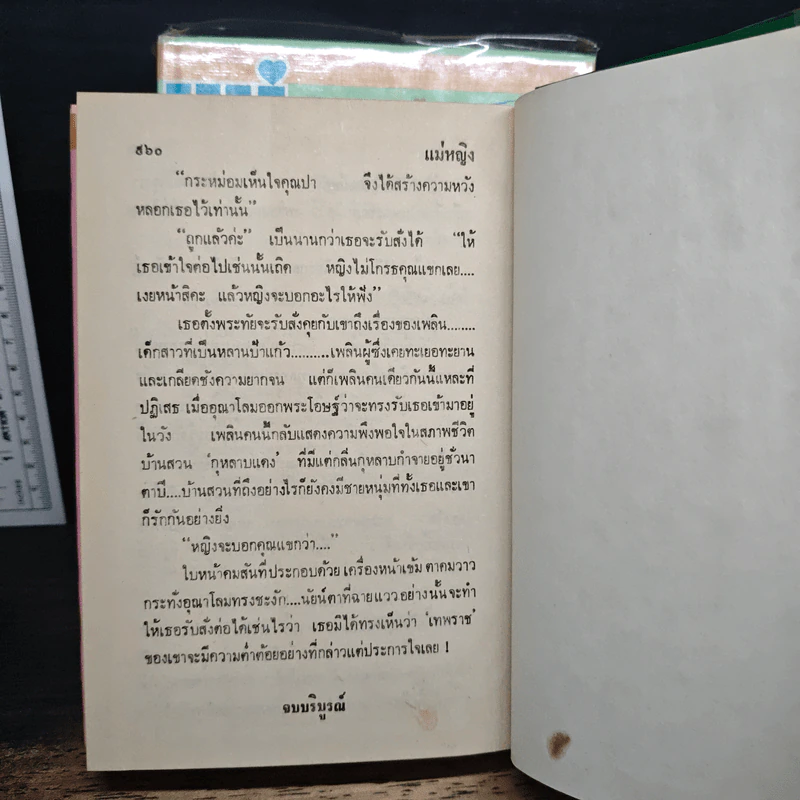 ๕๖๐ แม่หญิง
“กระหม่อมเห็นใจคุณปา จึงได้สร้างความหวัง
หลอกเธอไว้เท่านั้น”
“ถูกแล้วค่ะ” เป็นนานกว่าเธอจะรับสั่งได้ “ให้
เธอเข้าใจต่อไปเช่นนั้นเถิด หญิงไม่โกรธคุณแขกเลย....
เงยหน้าสิคะ แล้วหญิงจะบอกอะไรให้ฟัง”
เธอตั้งพระทัยจะรับสั่งคุยกับเขาถึงเรื่องของเพลิน........
เด็กสาวที่เป็นหลานป้าแก้ว..........เพลินผู้ซึ่งเคยทะเยอทะยาน
และเกลียดชังความยากจน แต่ก็เพลินคนเดียวกันนี้แหละที่
ปฏิเสธ เมื่ออุณาโลมออกพระโอษฐ์ว่าจะทรงรับเธอเข้ามาอยู่
ในวัง เพลินคนนี้กลับแสดงความพึงพอใจในสภาพชีวิต
บ้านสวน ‘กุหลาบแดง’ ที่มีแต่กลิ่นกุหลาบกำจายอยู่ชั่วนา
ตาปี....บ้านสวนที่ถึงอย่างไรก็ยังคงมีชายหนุ่มที่ทั้งเธอและเขา
ก็รักกันอย่างยิ่ง
“หญิงจะบอกคุณแขกว่า....”
ใบหน้าคมสันที่ประกอบด้วย เครื่องหน้าเข้ม ตาคมวาว
กระทั่งอุณาโลมทรงชะงัก....นัยน์ตาที่ฉายแวว อย่างนั้นจะทำ
ให้เธอรับสั่งต่อได้เช่นไรว่า เธอมิได้ทรงเห็นว่า ‘เทพราช’
ของเขาจะมีความต่ำต้อยอย่างที่กล่าวแต่ประการใจเลย !
จบบริบูรณ์